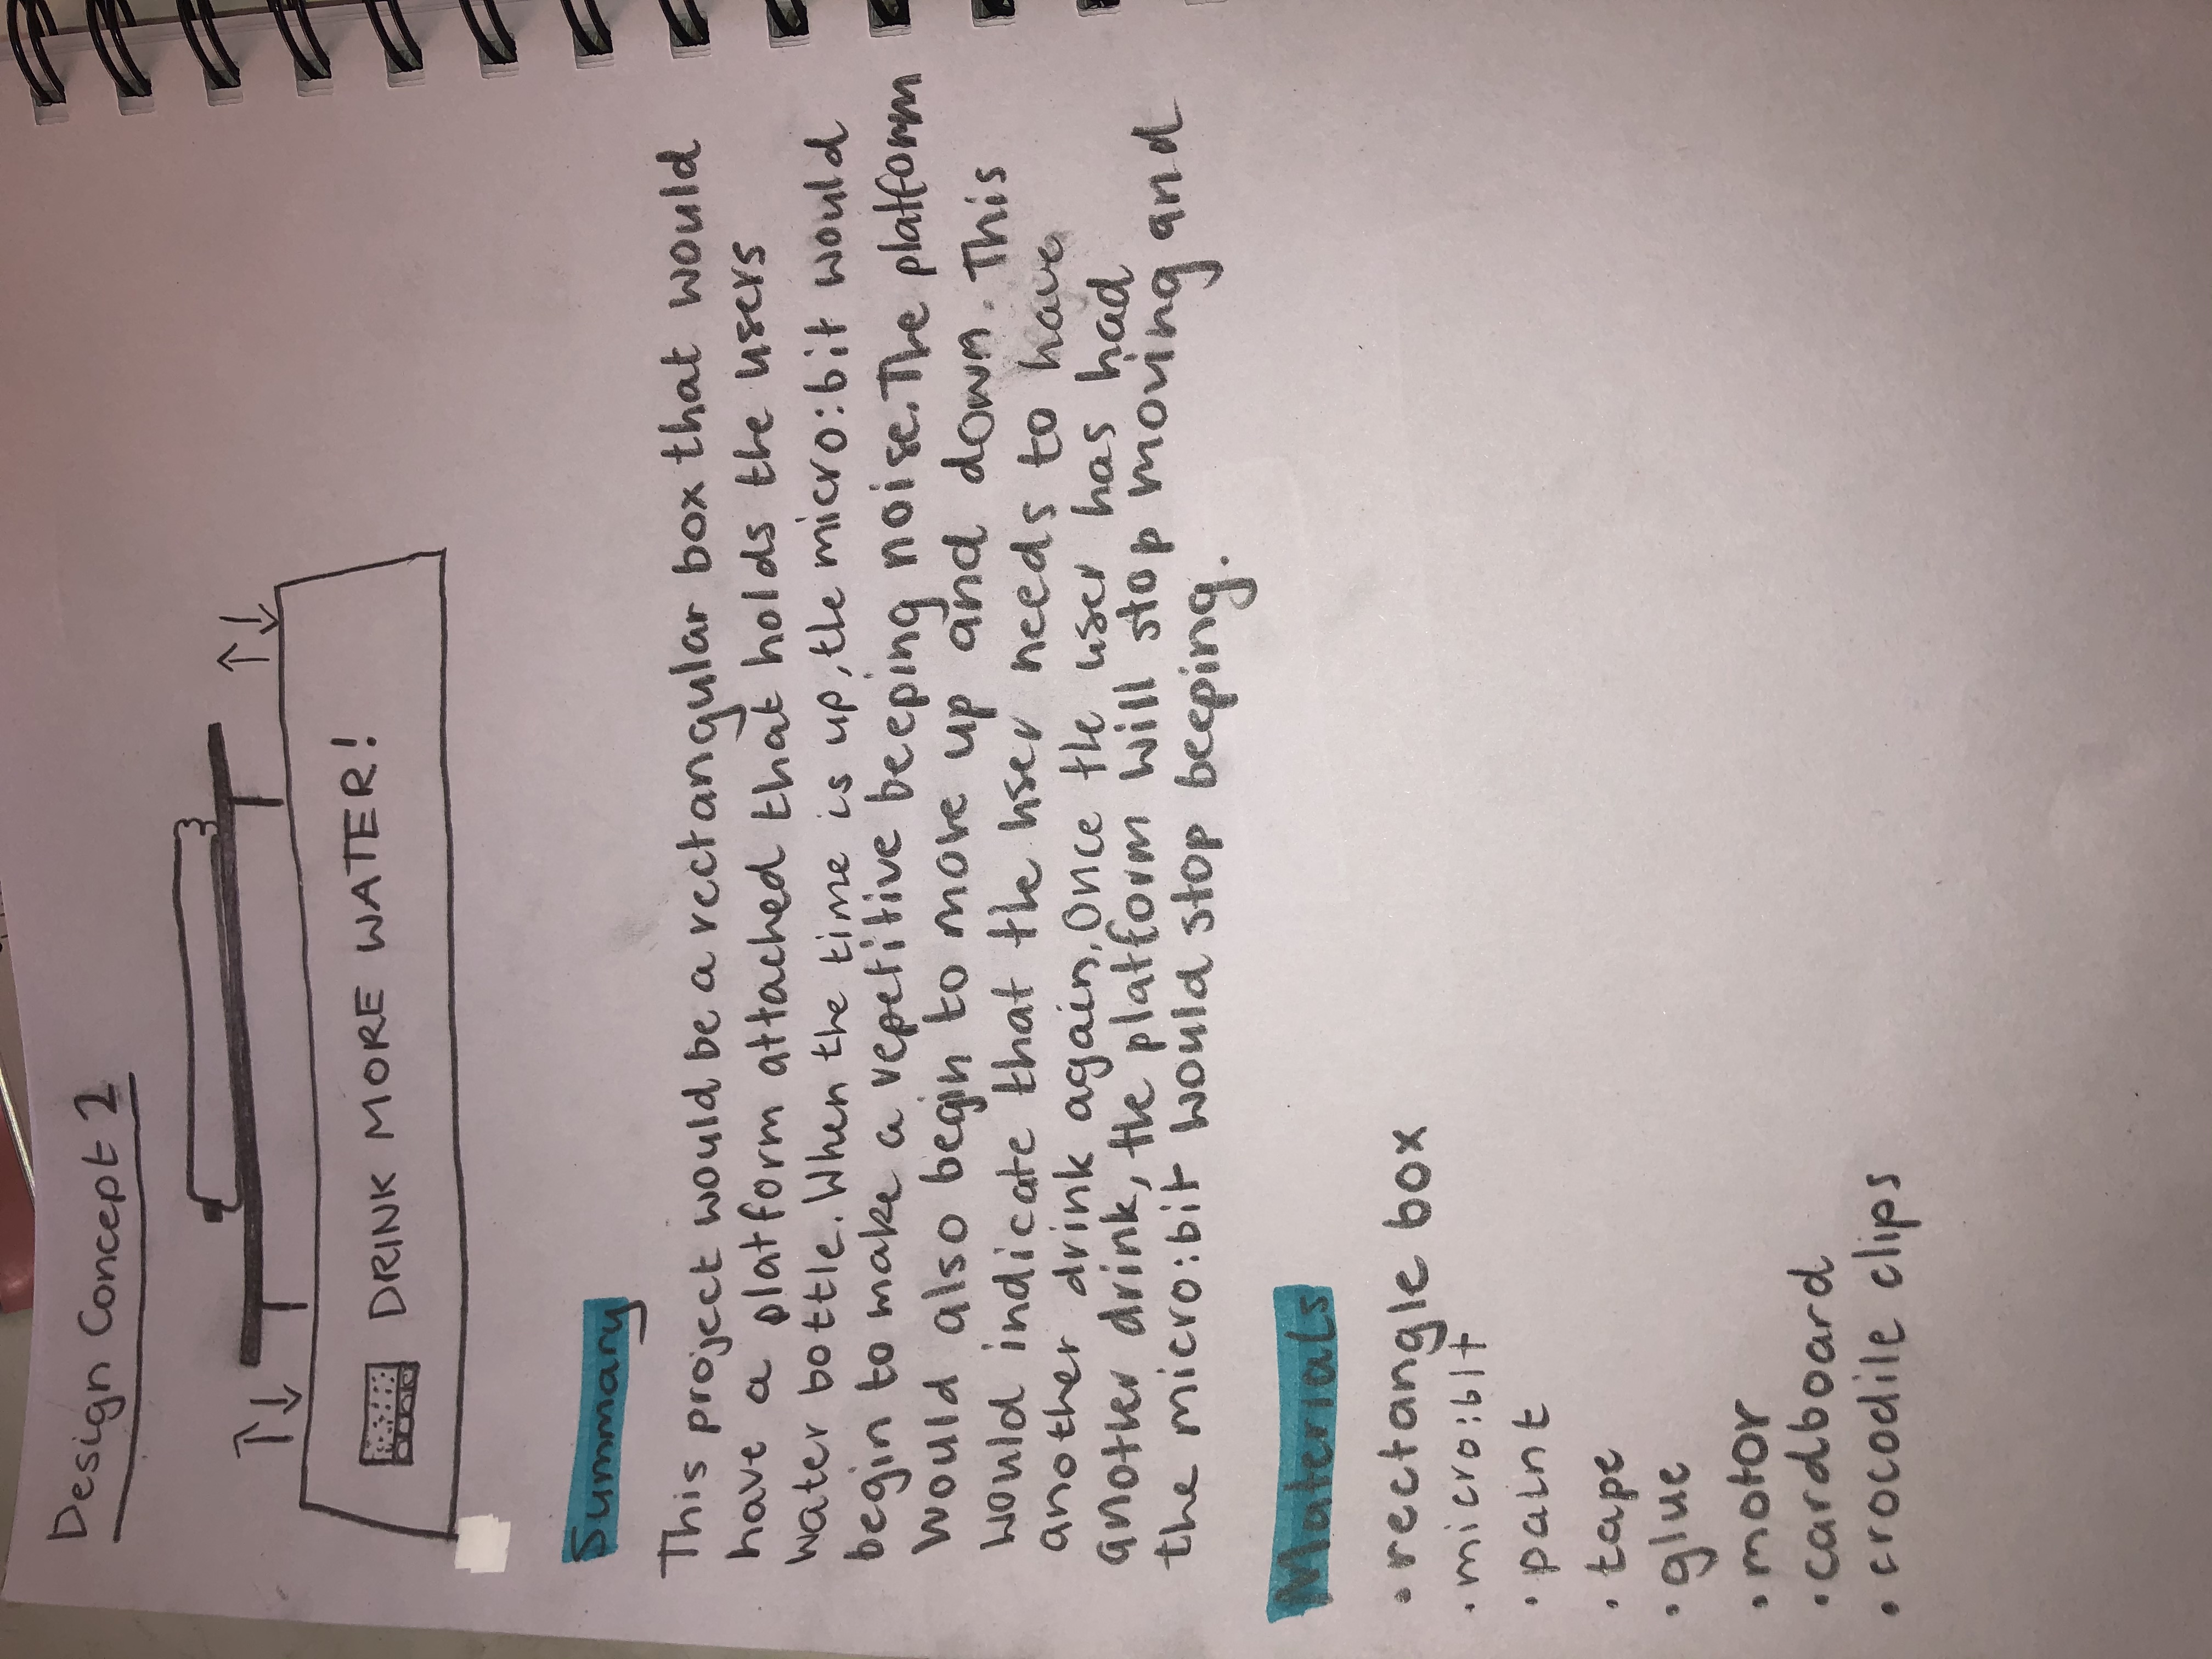 Design Concept 2
DRINK MORE WATER!
Summary
This project would be a rectangular box that would
have a platform attached that holds the users
water bottle. When the time is up, the micro:bit would
begin to make a repetitive beeping noise. The platform
would also begin to move up and down. This
would indicate that the user needs to have
another drink again. Once the user has had
another drink, the platform will stop moving and
the micro:bit would stop beeping.
Materials
• rectangle box
• micro:bit
• paint
• tape
• glue
• motor
• cardboard
• crocodile clips